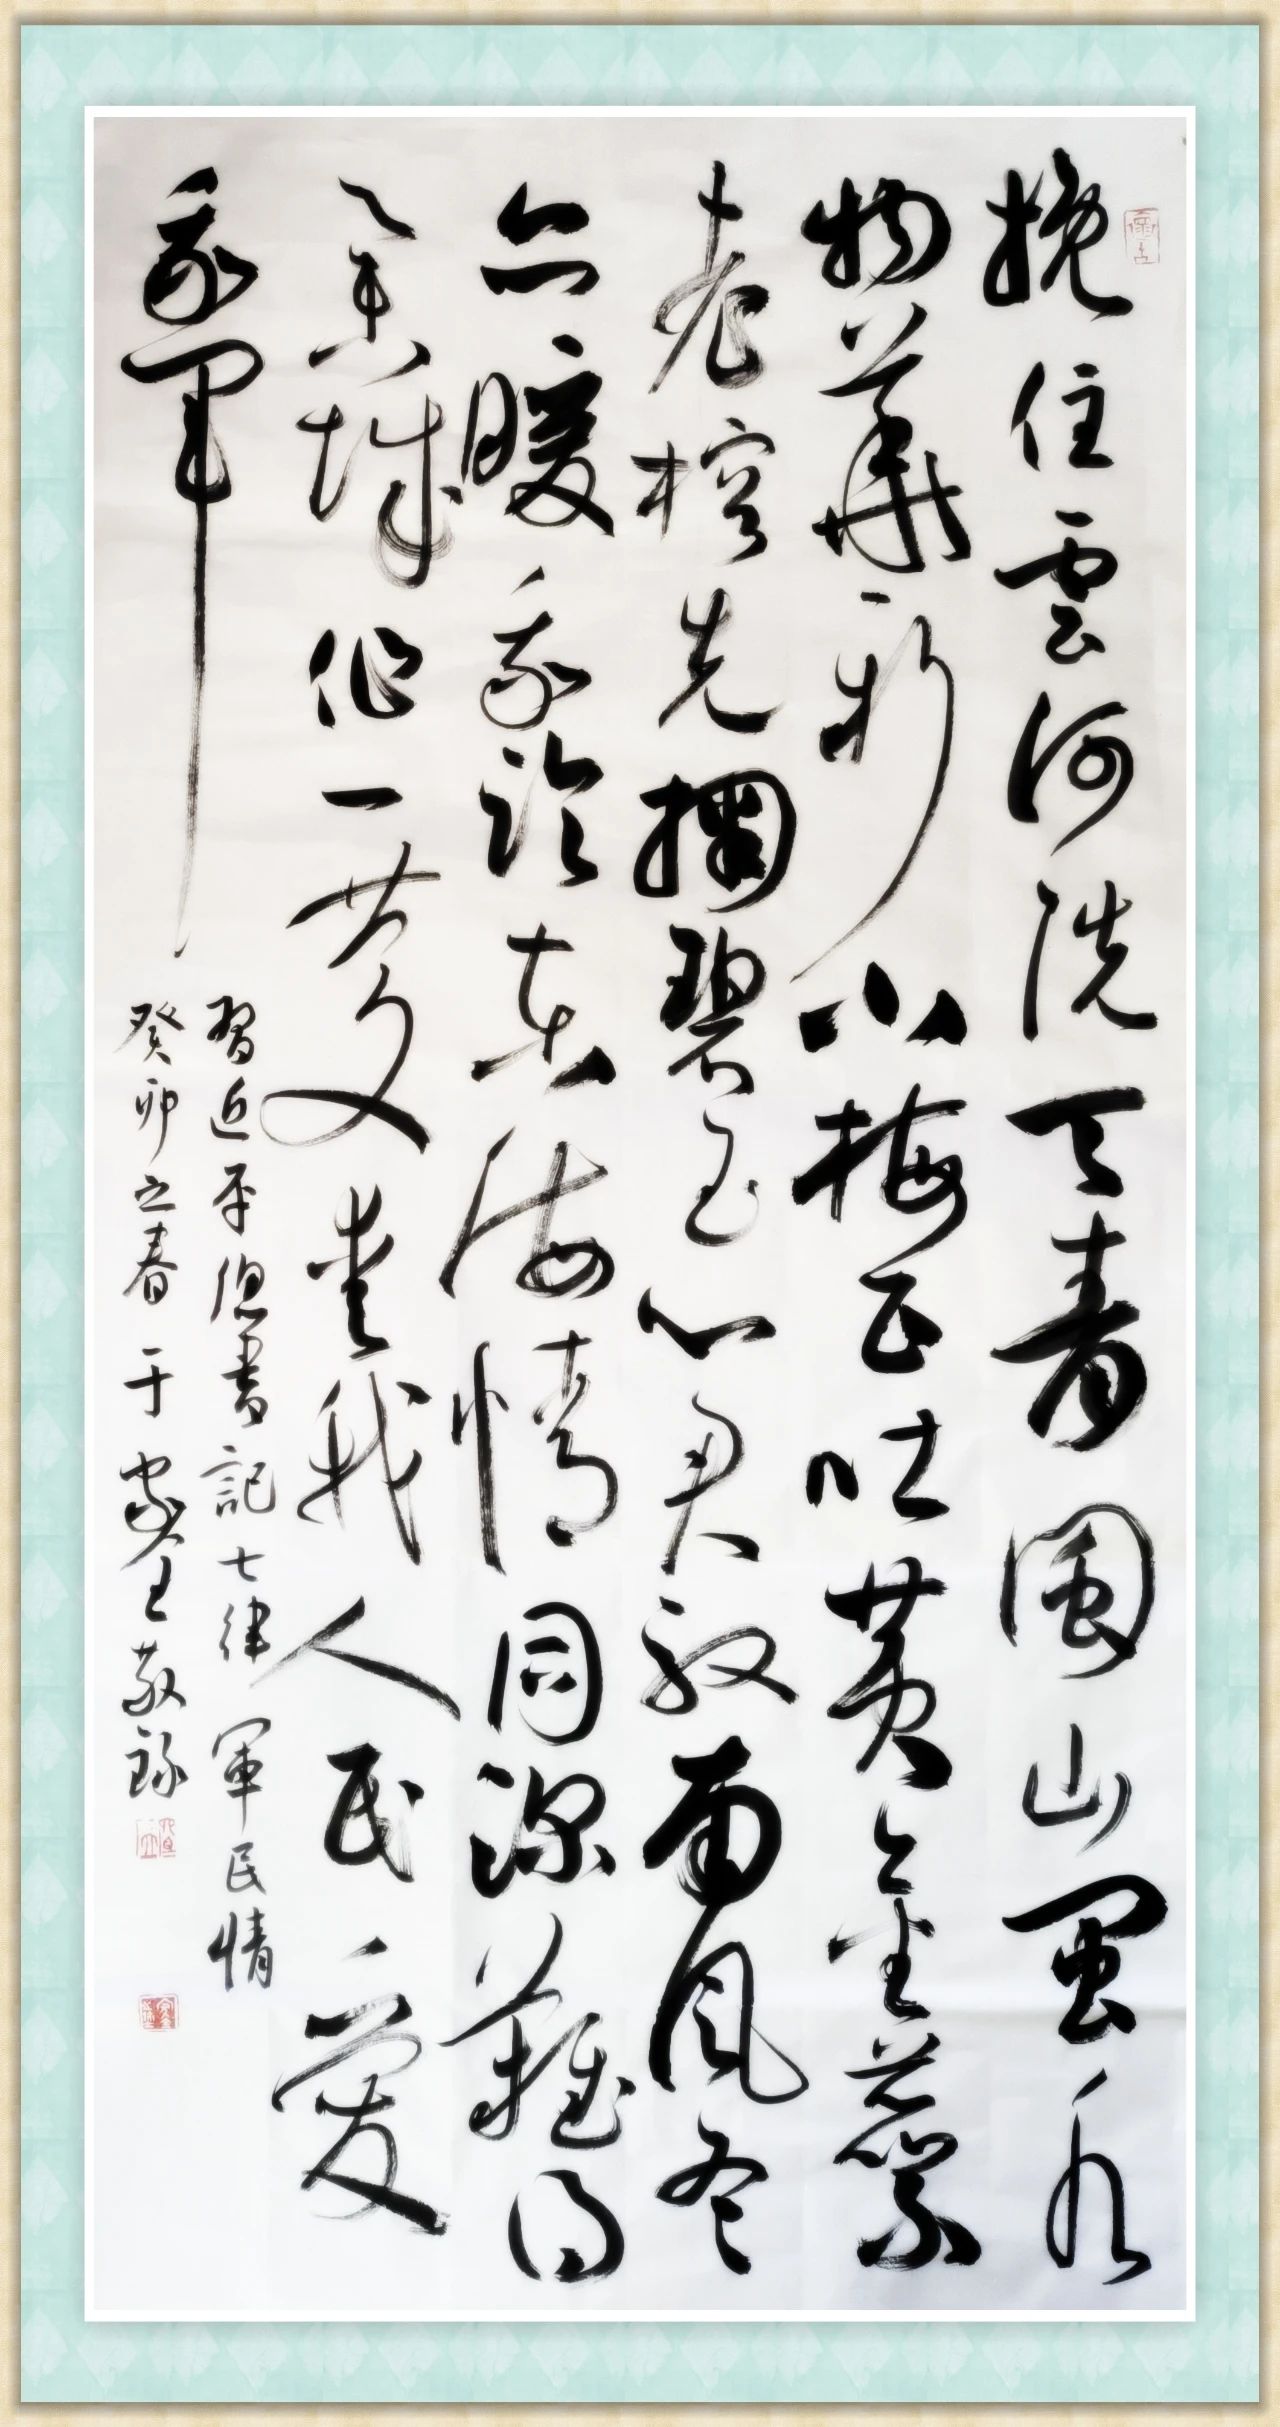 挽住雲河洗天青闽山闽水
物華新小梅正吐黄金蕊
老榕先掬碧玉心君驭南風冬
亦暖我临东海情同深難得
举城作一庆爱我人民愛
我军
習近平總書記七律 軍民情
癸卯之春于家全敬錄